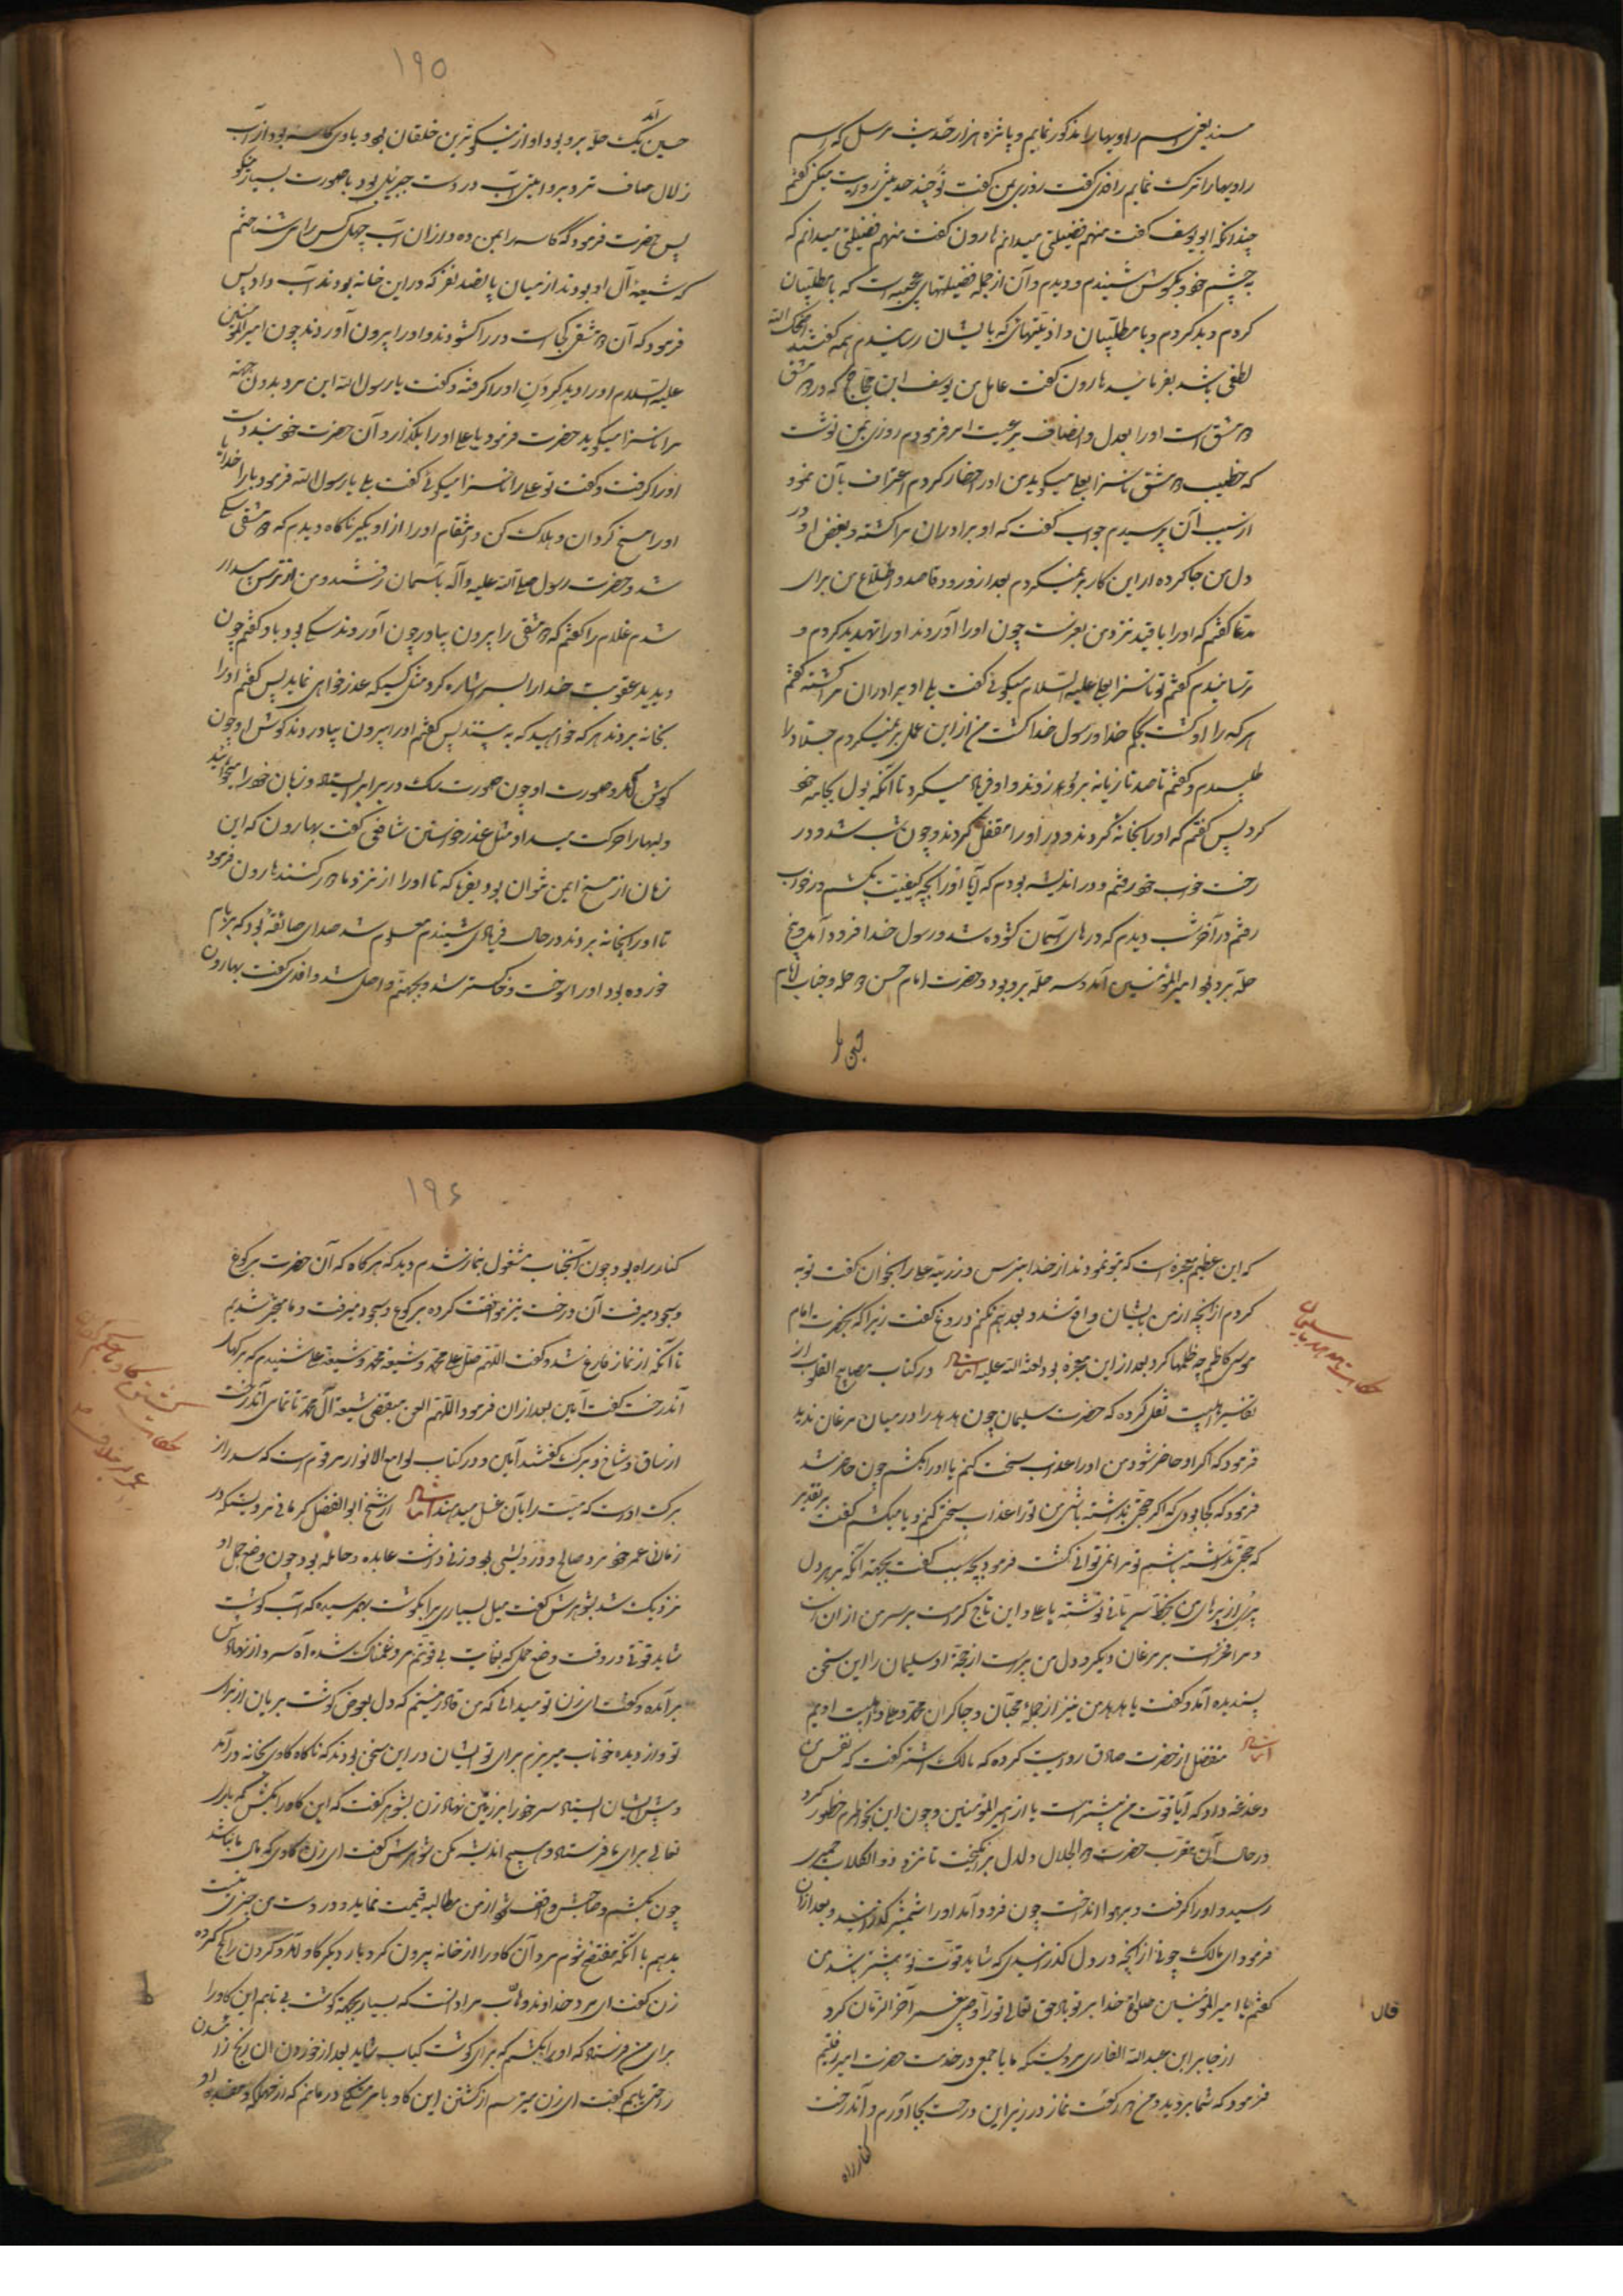 مسند یعنی اسم راویها را مذکور نمایم و پانزده هزار حدیث مرسل که اسم
راویها را ترک نمایم راقدی گفت روزی بمن گفت تو چند حدیثی روایت میکنی گفتم
چندانکه ابو یوسف گفت منهم فضیلتی میدانم هارون گفت منهم فضیلتی میدانم که
به چشم خود بگوش شنیدم و دیدم و آن از جمله فضیلتهای عجیبه است که با مطلبیان
کردم و بد کردم و با مطلبیان و اذیتهائی که بایشان رسانیدم همه گفتند اضحک الله
لطفی باشد بفرمائید هارون گفت عامل من یوسف ابن حجاج که در دمشق
دمشق است او را بعدل و انصاف بر رعیت امر فرمودم روزی بمن نوشت
که خطیب دمشق ناسزا بعلی میگوید من او را احضار کردم اعتراف بآن نمود
از سبب آن پرسیدم جواب گفت که او برادران مرا کشته و بغض او در
دل من جا کرده از این کار بر نمیگردم بعد از ورود قاصد و اطلاع من برای
مدعا گفتم که او را با قید نزد من بفرست چون او را آوردند او را تهدید کردم و
ترسانیدم گفتم تو ناسزا بعلی علیه السلام میگوئی گفت بلی او برادران مرا کشته گفتم
هر که را او کشت بحکم خدا و رسول خدا کشت من از این عمل بر نمیگردم جلاد را
طلبیدم و گفتم تا صد تازیانه بر او زدند و او فریاد میکرد تا آنکه بول بجامه خود
کرد پس گفتم که او را بخانه کردند و در او را مقفل کردند و چون شب شد و در
رخت خواب خود رفتم و در اندیشه بودم که آیا او را بچه کیفیت بکشم در خواب
رفتم در آخر شب دیدم که درهای آسمان گشوده شد و رسول خدا فرود آمد و پنج
حله بر او بود امیر المؤمنین آمد و سه حله بر او بود و حضرت امام حسن دو حله و جناب امام
حسین آمد یک حله بر او بود و او از نیکوترین خلقان بود و با وی کاسه بود از آب
۱۹۵
زلال صاف تر و برد ابیض آب در دست جبرئیل بود با صورت بسیار نیکو
پس حضرت فرمود که کاسه را بمن ده و از ان آب چهل کس را می شناختم
که شیعه آل او بودند از میان پانصد نفر که در این خانه بودند آب داد پس
فرمود که آن دمشقی کجا است در را گشودند و او را بیرون آوردند چون امیر المؤمنین
علیه السلام او را دید گردن او را گرفته و گفت یا رسول الله این مرد بدون جهة
مرا ناسزا میگوید حضرت فرمود یا علی او را بگذار و آن حضرت خود بند دست
او را گرفت و گفت تو علی را ناسزا میگوئی گفت بلی یا رسول الله فرمود بار خدایا
او را مسخ گردان و هلاک کن و انتقام او را از او بگیر ناگاه دیدم که دمشقی سگ
شد و حضرت رسول صلی الله علیه و آله بآسمان رفتند و من از ترس بیدار
شدم غلام را گفتم که دمشقی را بیرون بیاور چون آوردند سگ بود باو گفتم چون
دیدید عقوبت خدا را بسر اشاره کرد مثل کسیکه عذر خواهی نماید پس گفتم او را
بخانه بردند هر که خواهید که ببیند پس گفتم او را بیرون بیاوردند گوش او چون
گوش آدم و صورت او چون صورت سگ در برابر ایستاد و زبان خود را میجنبانید
و لبها را حرکت میداد مثل عذر خواستن شافعی گفت بهارون که این
زمان از مسخ ایمن نتوان بود بفرما که تا او را از نزد ما دور کنند هارون فرمود
تا او را بخانه بردند در حال فریادی شنیدم معلوم شد صدای صاعقه بود که بر بام
خورده بود او را سوخت و خاکستر شد و بجهنم واصل شد واقدی گفت بهارون
که این عظیم معجزه است که بتو نمودند از خدا بترس و ذریه علی را مرنجان گفت توبه
کردم از آنچه از من بایشان واقع شد و بعد هم نکنم دروغ گفت زیرا که بحضرت امام
موسی کاظم چه ظلمها کرد بعد از این معجزه بود لعنة الله علیه ایضا در کتاب مصابیح القلوب از
تفسیر اهلبیت نقل کرده که حضرت سلیمان چون هدهد را در میان مرغان ندید
حکایت هدهد با سلیمان
فرمود که اگر او حاضر شود من او را عذاب سخت کنم یا او را بکشم چون حاضر شد
فرمود که کجا بودی که اگر حجتی نداشته باشی من تو را عذاب سختی کنم و یا میکشم گفت بر تقدیر
که حجتی نداشته باشم تو مرا نمی توانی کشت فرمود بچه سبب گفت بجهة آنکه بر هر دل
پری از پرهای من بخط سریانی نوشته یا علی و این تاج کرامت بر سر من از ان است
و مرا فخر است بر مرغان دیگر و دل من پر است از محبة او سلیمان را این سخن
پسندیده آمد و گفت یا هدهد من نیز از جمله محبان و چاکران محمد و علی و اهلبیت اویم
ایضا مفضل از حضرت صادق روایت کرده که مالک اشتر گفت که نفس من
دغدغه داد که آیا قوت من بیشتر است یا از امیر المؤمنین و چون این بخاطرم خطور کرد
در حال آن مقرب حضرت ذو الجلال دلدل بر انگیخت تا نزد ذو الکلاب حمیری
رسید و او را گرفت و بر هوا انداخت چون فرود آمد او را بشمشیر گذرانید و بعد از ان
فرمود ای مالک چونی از آنچه در دل گذرانیدی که شاید قوت تو بیشتر باشد من
گفتم یا امیر المؤمنین صلوة خدا بر تو باد حق تعالی تو را وصی پیغمبر آخر الزمان کرد
قال
از جابر ابن عبدالله الغاری مرویست که ما با جمعی در خدمت حضرت امیر رفتیم
فرمود که شما بروید و من دو رکعت نماز در زیر این درخت بجا آورم و آندرخت
کنار راه
۱۹۶
کنار راه بود چون آنجناب مشغول بنماز شد دیدم که هر گاه که آن حضرت برکوع
و سجود میرفت آن درخت نیز موافقت کرده برکوع و سجود میرفت و ما متحیر شدیم
تا آنکه از نماز فارغ شد و گفت اللهم صل علی محمد و شیعة محمد و شیعة علی شنیدم که برگهای
آندرخت گفت آمین بعد از ان فرمود اللهم العن مبغضی شیعة آل محمد تا تمامی آندرخت
از ساق و شاخ و برگ گفتند آمین و در کتاب لوامع الانوار مرقوم است که سدر از
برکت اوست که میت را بآن غسل میدهند ایضا از شیخ ابو الفضل کرمانی مرویستکه در
زمان عمر خود مرد صالح و درویشی بود و زنی داشت عابده و حامله بود چون وضع حمل او
نزدیک شد بشوهرش گفت میل بسیاری مرا بگوشت بهم رسیده که آب گوشت
شاید قوتی در وقت وضع حمل که بغایت بی قوتم مرد غمناک شده آه سرد از نهادش
بر آمده و گفت ای زن تو میدانی که من قادر نیستم که دل بعوض گوشت بریان از برای
تو و از دیده خوناب میریزم برای تو ایشان در این سخن بودند که ناگاه گاوی بخانه در آمد
و پیش ایشان ایستاد سر خود را بر زمین نهاد زن بشوهر گفت که این گاو را بکش که باری
تعالی برای ما فرستاد و هیچ اندیشه مکن شوهرش گفت ای زن گاوی که مال ما نباشد
چون بکشم و صاحبش واقف شود از من مطالبه قیمت نماید و در دست من چیزی نیست
بدهم یا آنکه مفتضح شوم مرد آن گاو را از خانه بیرون کرد بار دیگر گاو آمد و گردن را کج کرده
زن گفت ای مرد خداوند وهاب مراد است که بسیار بجهة گوشت بی تابم این گاو را
برای من فرستاد که او را بکشم که برای گوشت کباب شاید بعد از خوردن ان رنج زائیدن
راحتی یابم گفت ای زن میترسم از کشتن این گاو
حکایت کشتن گاو بحکم